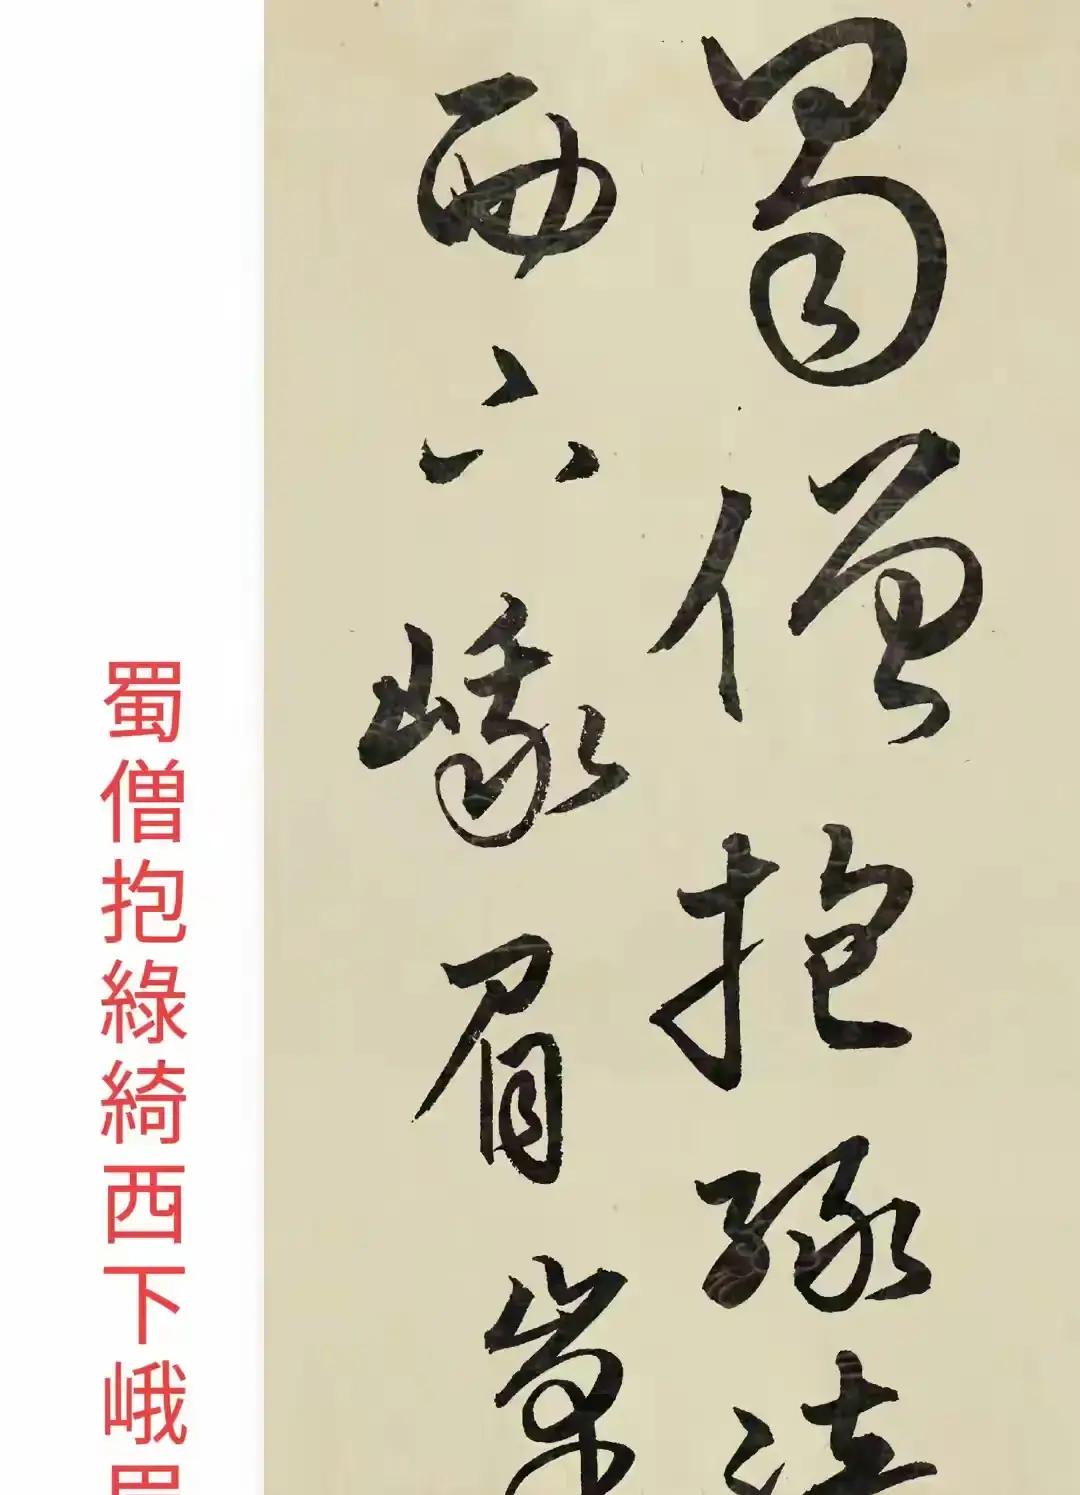 蜀僧抱綠綺
西下峨眉峯
蜀僧抱綠綺西下峨眉